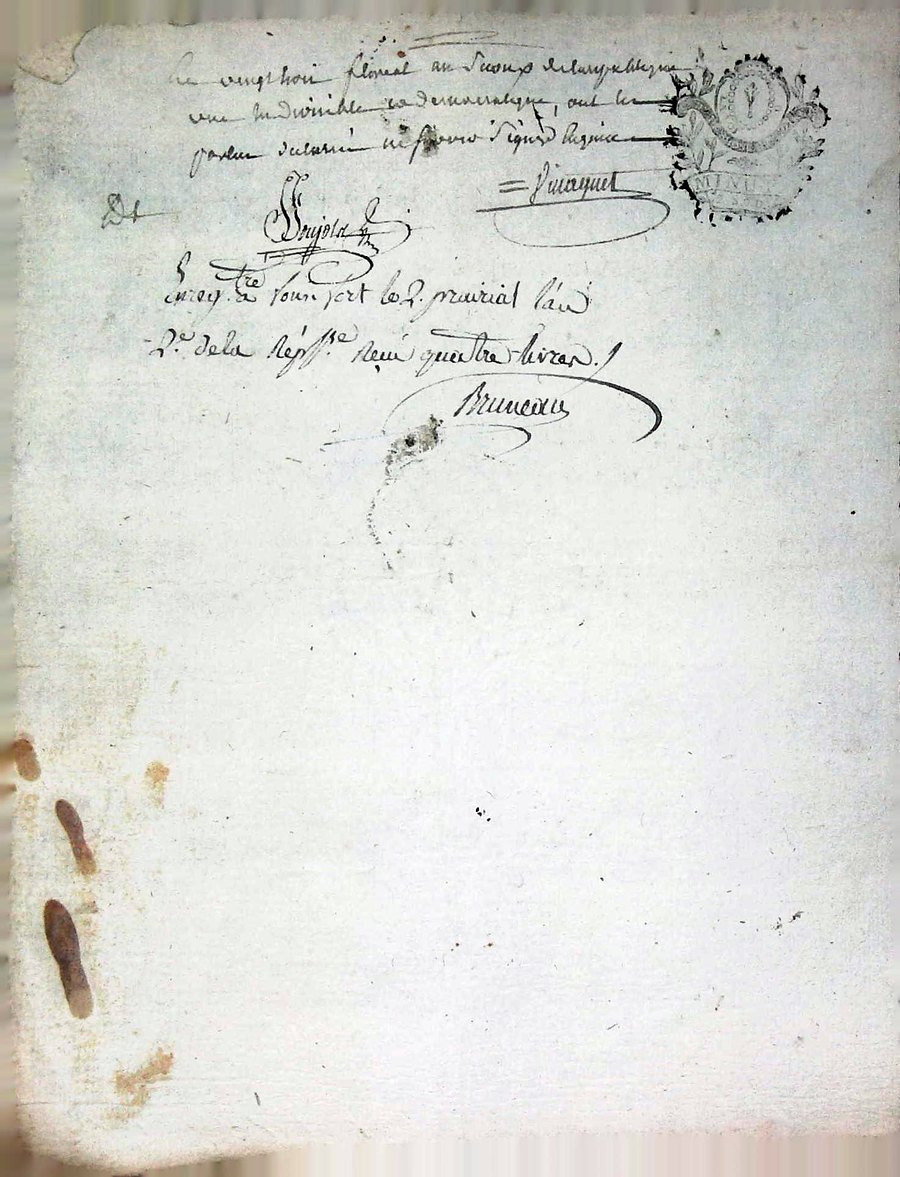 Le vingt trois floréal an second de la republique
une indivisible et democratique, ont les
parties declaré ne savoir signer
MINUTE
= Vinaquet
Dt
Boujola
Enreg.tré à le 2. prairial l'an
2.e de la Rep.que Reçu quatre livres.
Bruneau